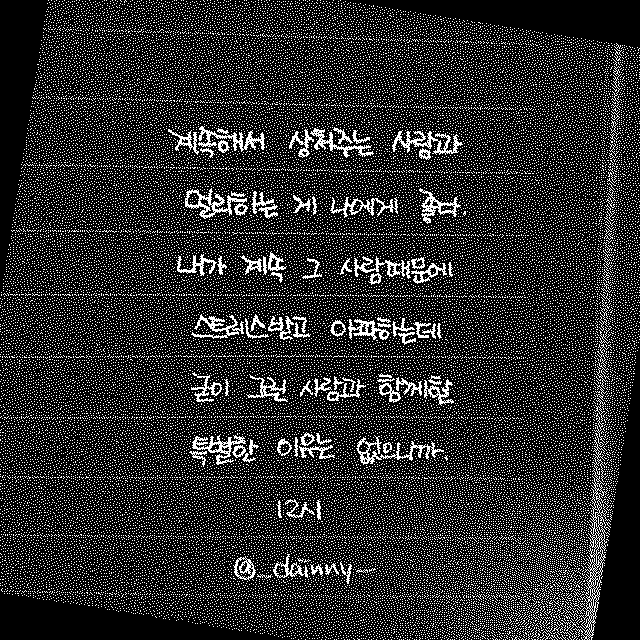 계속해서 상처주는 사람과
멀리하는 게 나에게 좋다.
내가 계속 그 사람때문에
스트레스받고 아파하는데
굳이 그런 사람과 함께할
특별한 이유는 없으니까.
12시
@_dainny_